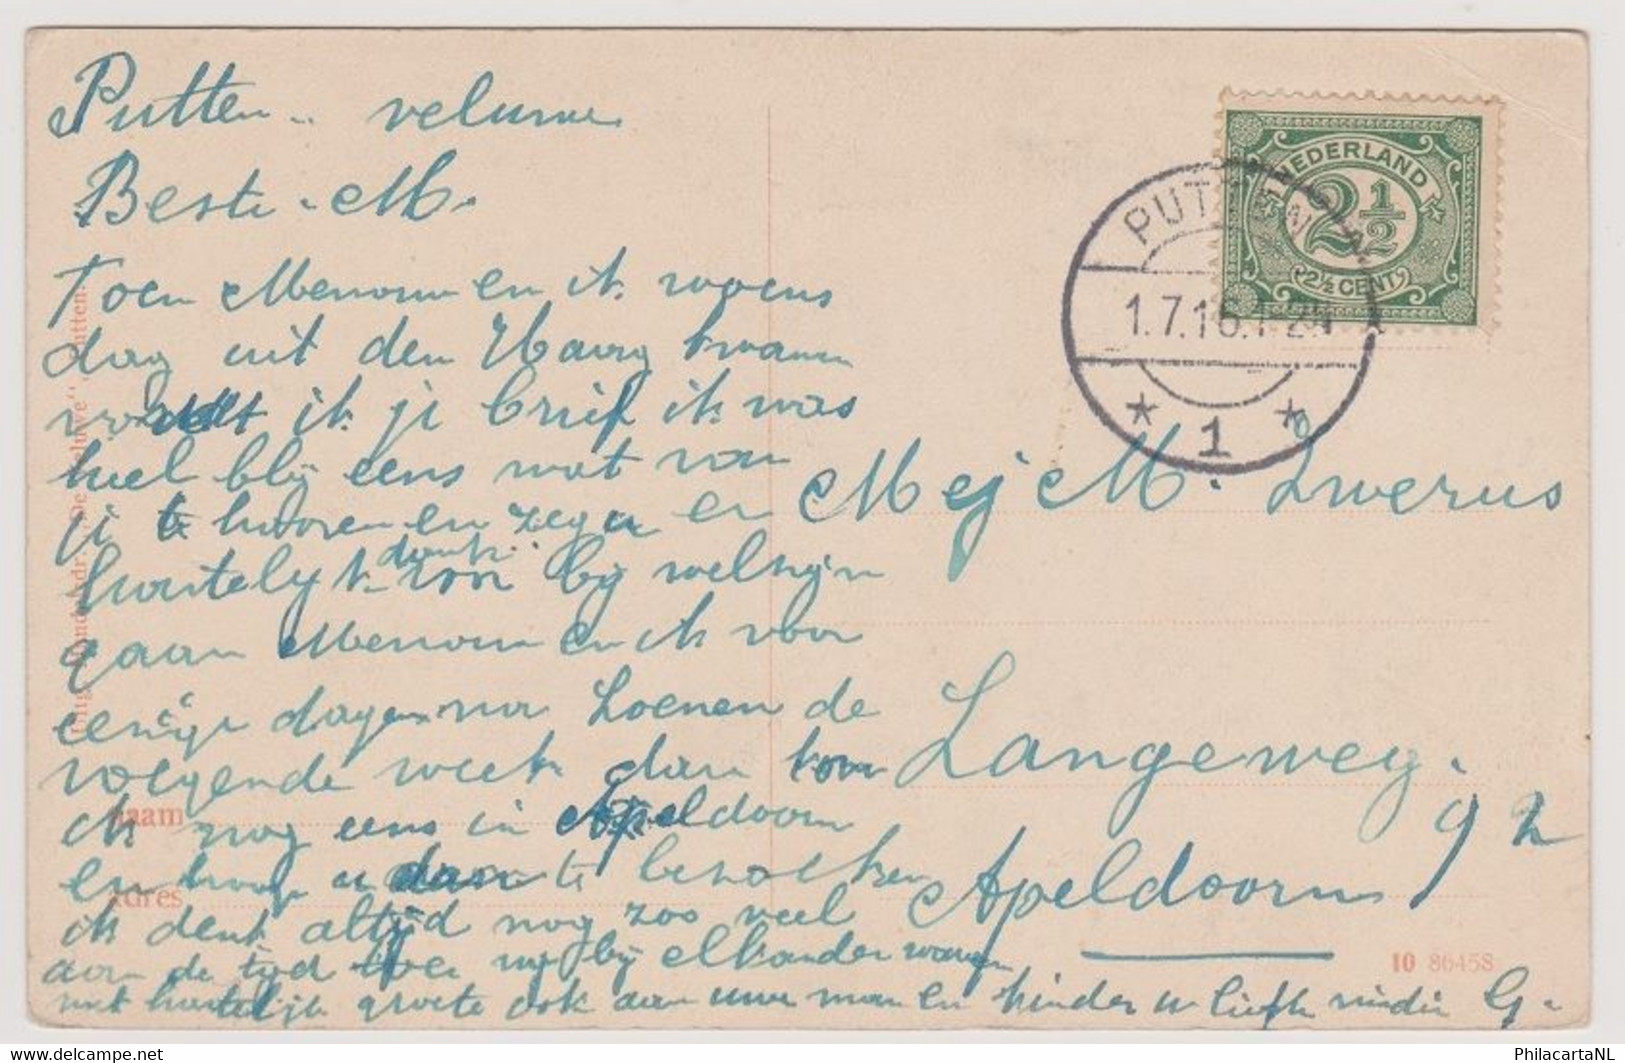 Putten. veluwe
Beste. M.
Toen Mevrouw en ik woens
dag uit den Haag kwam
ik je brief ik was
heel blij eens wat van
je te hooren en zeg u er
hartelijk dank voor bij welzijn
gaan Mevrouw en ik voor
eenige dagen na Loenen de
volgende week dan kom
ik nog eens in Apeldoorn
en hoop u dan te bezoeken
ik denk altijd nog zoo veel
aan de tijd toe wij bij elkander waren
met hartelijke groete ook aan uwe man en kinder u liefh G.
Mej M. Zwerus
Langeweg.
92
Apeldoorn
NEDERLAND
2½
2½ CENT
PUTTEN
1.7.16.
1
naam
adres
10 86458
delcampe.net
PhilacartaNL